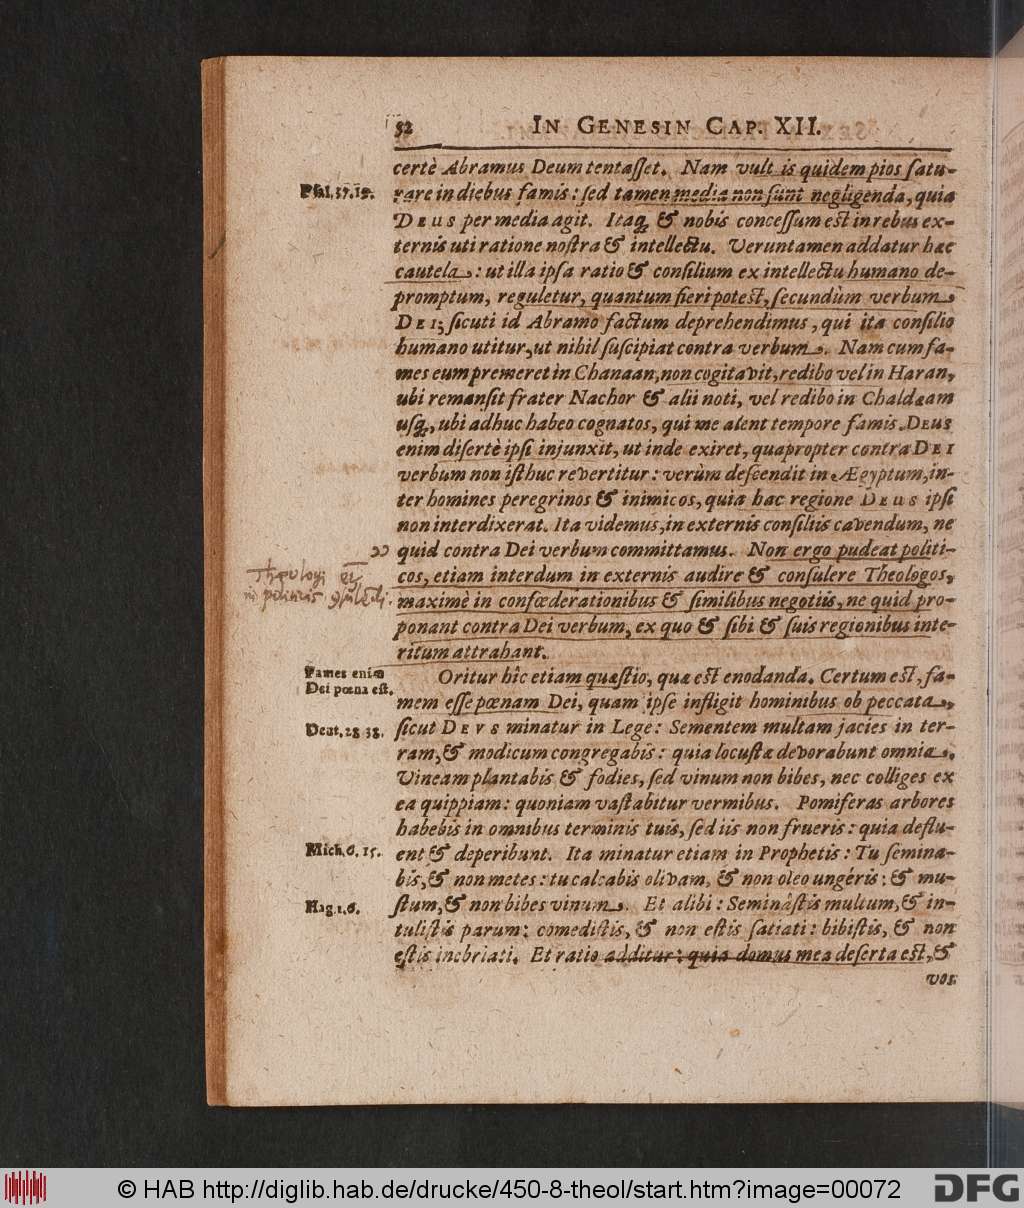 52 IN GENESIN CAP. XII.
certè Abramus Deum tentaſſet. Nam vult is quidem pios ſatu-
Pſal.37.19.
rare in diebus famis: ſed tamen media non ſunt negligenda, quia
DEUS per media agit. Itaq; & nobis conceſſum eſt in rebus ex-
ternis uti ratione noſtra & intellectu. Veruntamen addatur hæc
cautela: ut illa ipſa ratio & conſilium ex intellectu humano de-
promptum, reguletur, quantum fieri poteſt, ſecundùm verbum
DEI; ſicuti id Abramo factum deprehendimus, qui ita conſilio
humano utitur, ut nihil ſuſcipiat contra verbum. Nam cum fa-
mes eum premeret in Chanaan, non cogitavit, redibo vel in Haran,
ubi remanſit frater Nachor & alii noti, vel redibo in Chaldæam
uſq;, ubi adhuc habeo cognatos, qui me alent tempore famis. DEUS
enim diſertè ipſi injunxit, ut inde exiret, quapropter contra DEI
verbum non iſthuc revertitur: verùm deſcendit in Ægyptum, in-
ter homines peregrinos & inimicos, quia hac regione DEUS ipſi
non interdixerat. Ita videmus, in externis conſiliis cavendum, ne
quid contra Dei verbum committamus. Non ergo pudeat politi-
cos, etiam interdum in externis audire & conſulere Theologos,
maximè in confœderationibus & ſimilibus negotiis, ne quid pro-
ponant contra Dei verbum, ex quo & ſibi & ſuis regionibus inte-
ritum attrahant.
Fames enim
Dei pœna eſt.
Oritur hîc etiam quæſtio, quæ eſt enodanda. Certum eſt, fa-
mem eſſe pœnam Dei, quam ipſe infligit hominibus ob peccata,
Deut.28.38.
ſicut DEVS minatur in Lege: Sementem multam jacies in ter-
ram, & modicum congregabis: quia locuſtæ devorabunt omnia.
Vineam plantabis & fodies, ſed vinum non bibes, nec colliges ex
ea quippiam: quoniam vaſtabitur vermibus. Pomiferas arbores
habebis in omnibus terminis tuis, ſed iis non frueris: quia deflu-
Mich.6.15.
ent & deperibunt. Ita minatur etiam in Prophetis: Tu ſemina-
bis, & non metes: tu calcabis olivam, & non oleo ungéris: & mu-
Hag.1.6.
ſtum, & non bibes vinum. Et alibi: Seminâſtis multum, & in-
tuliſtis parum: comediſtis, & non eſtis ſatiati: bibiſtis, & non
eſtis inebriati. Et ratio additur: quia domus mea deſerta eſt, &
vos
© HAB http://diglib.hab.de/drucke/450-8-theol/start.htm?image=00072
DFG